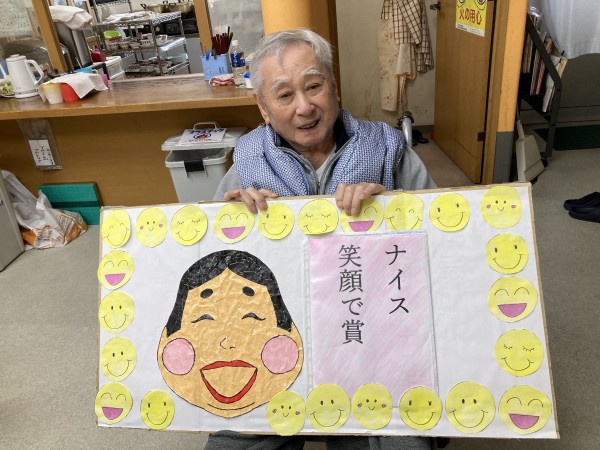 ナイス
笑顔で賞
火の用心